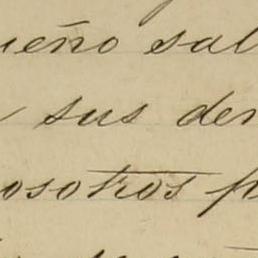 ueño sal
sus der
osotros p